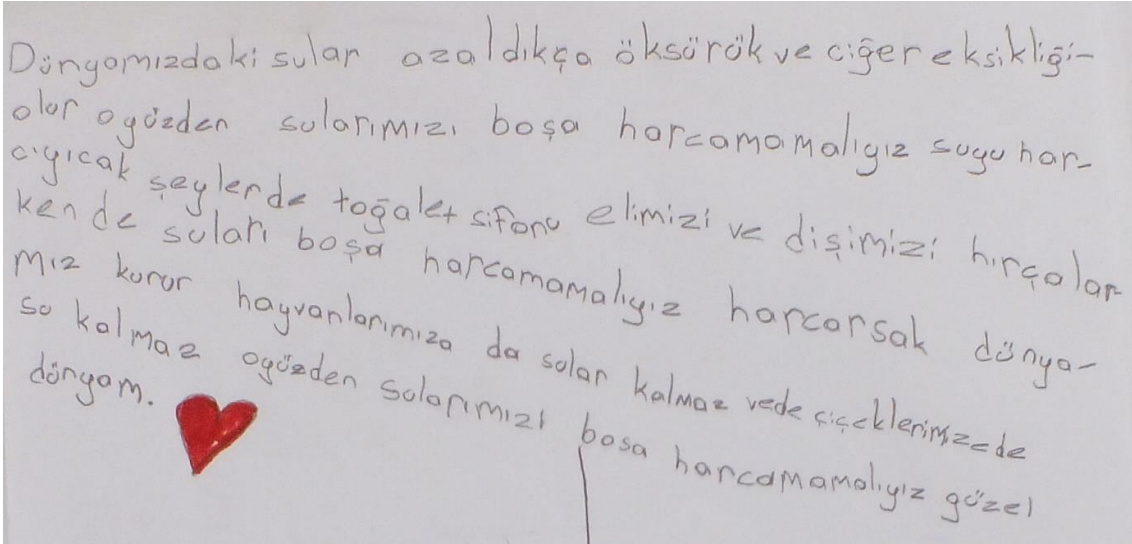 Dünyamızdaki sular azaldıkça öksürük ve ciğer eksikliği-
olur ogüzden sularımızı boşa harcamamalıyız suyu har-
cıyıcak şeylerde toğalet sifonu elimizi ve dişimizi hırçalar
ken de suları boşa harcamamalıyız harcarsak dünya-
mız kurur hayvanlarımıza da sular kalmaz vede çiçeklerimizede
su kalmaz ogüzden sularımızı bosa harcamamalıyız güzel
dünyam.